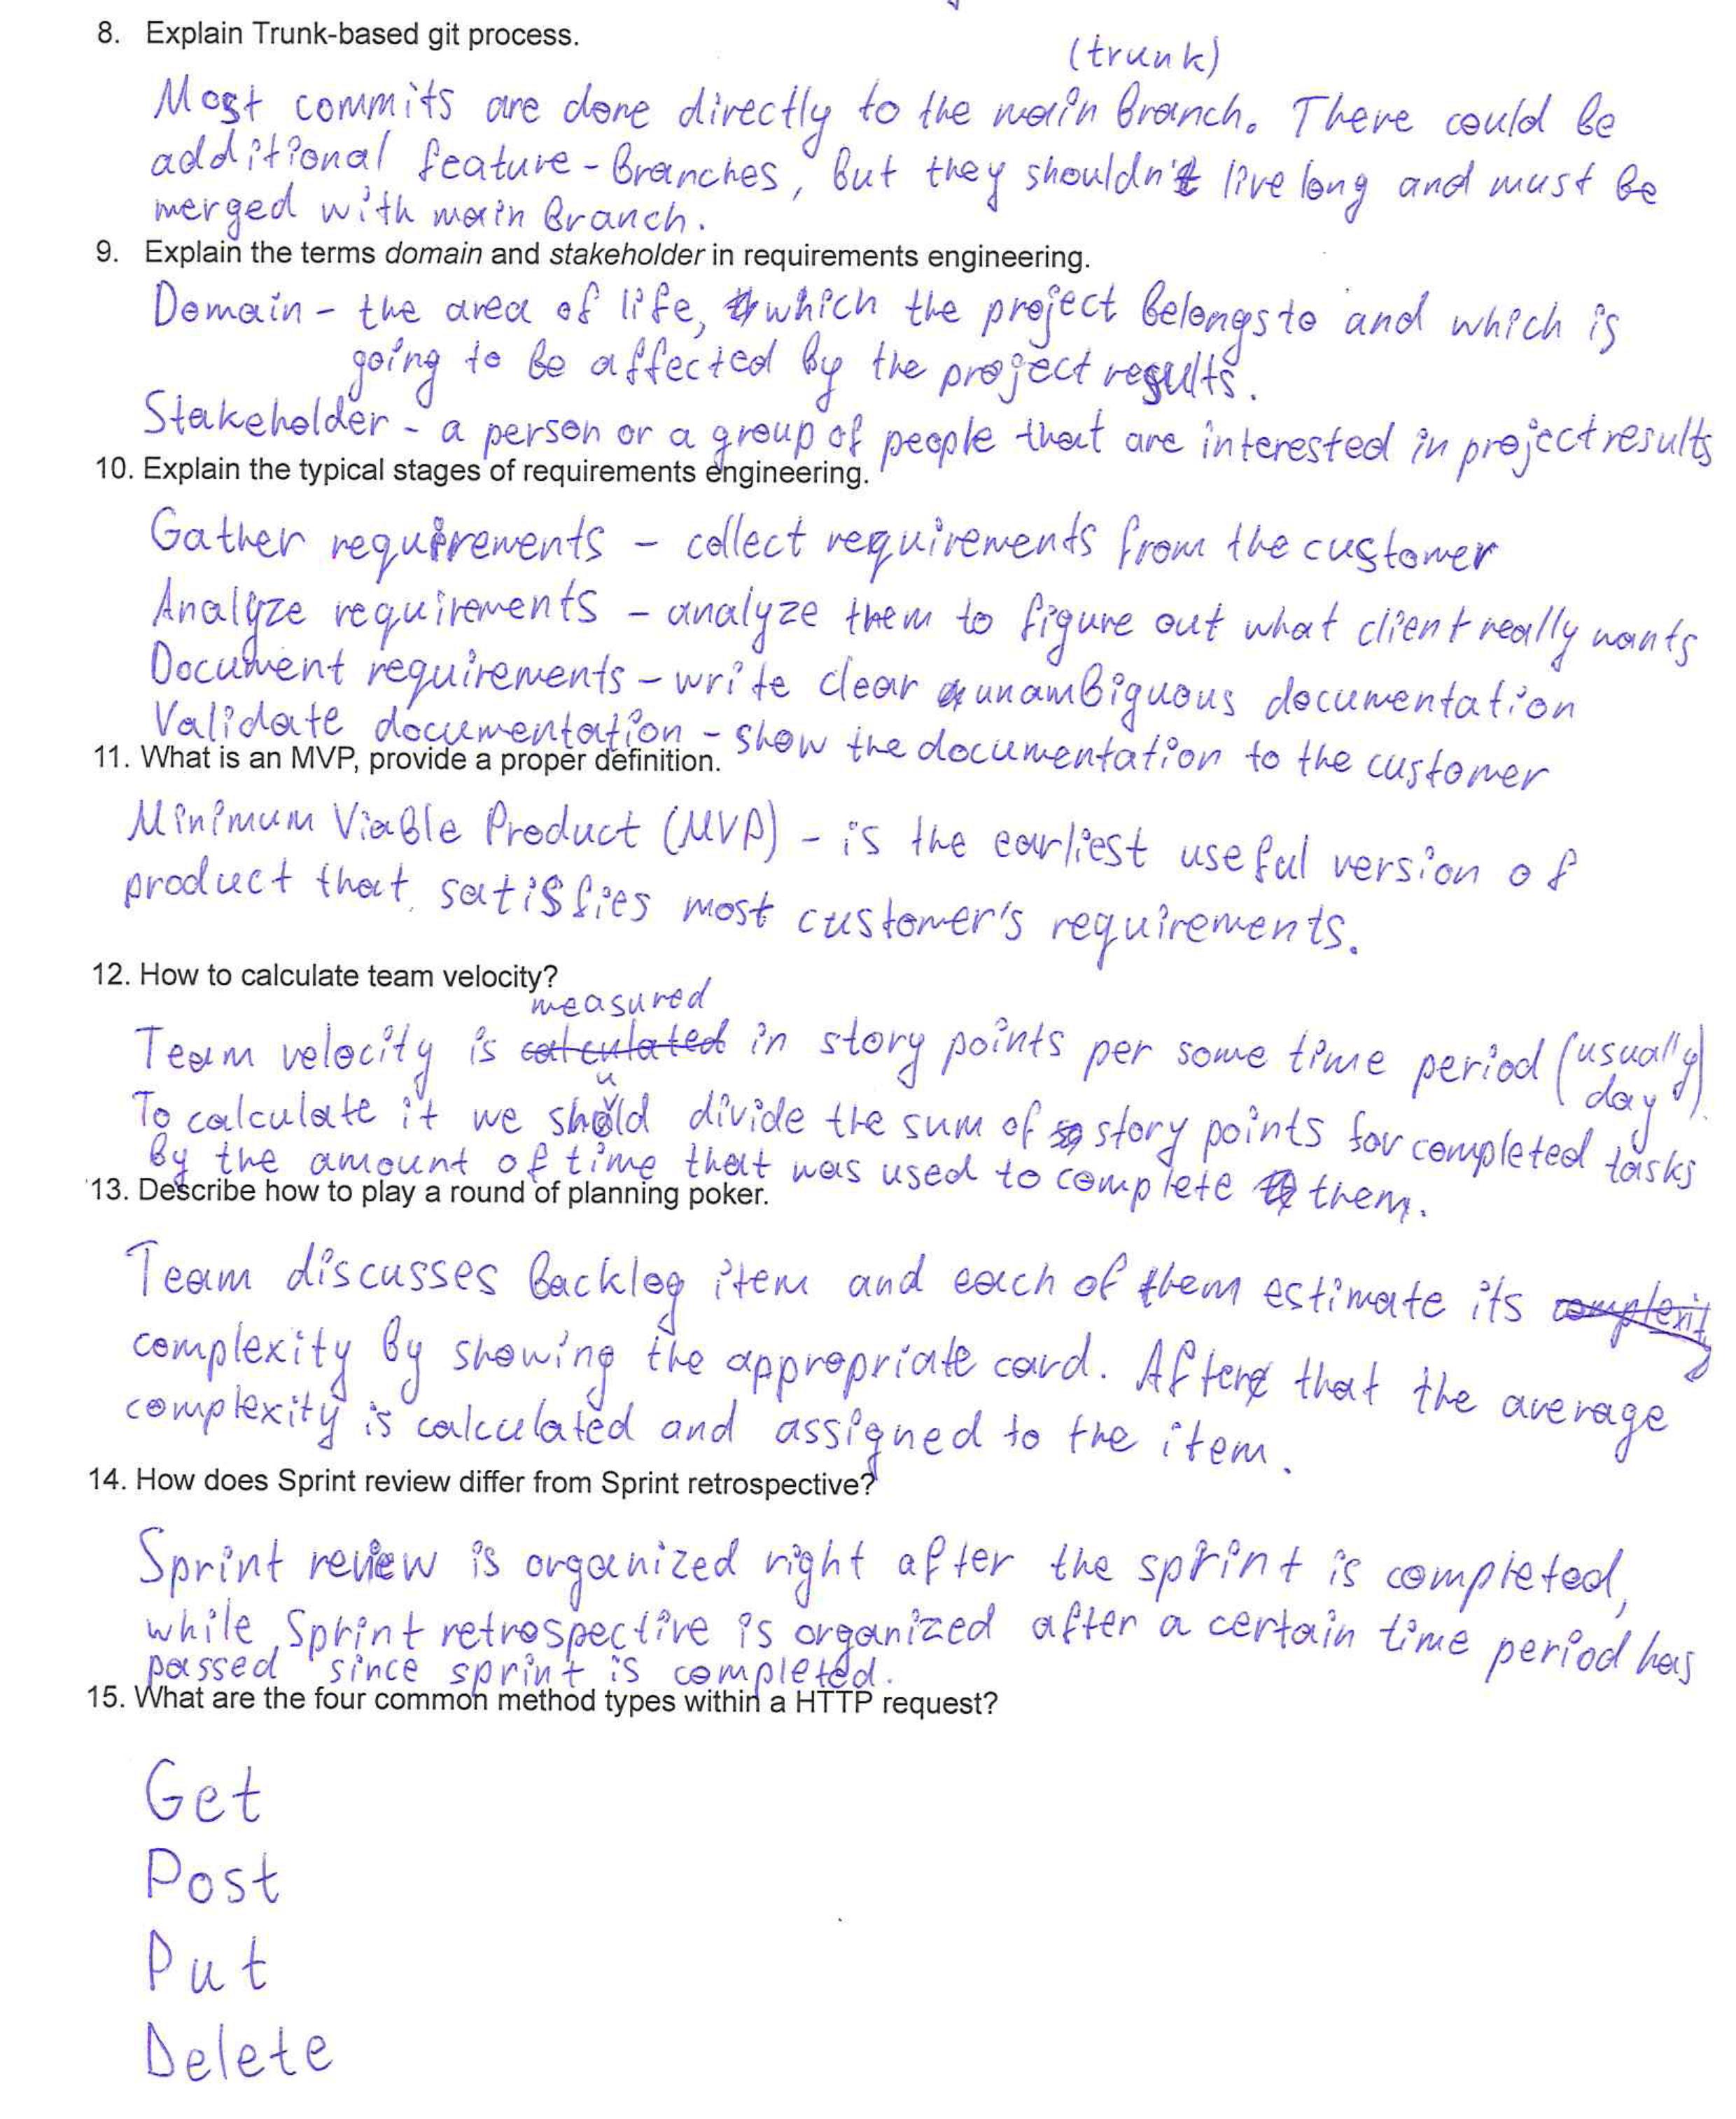 8. Explain Trunk-based git process.
(trunk)
Most commits are done directly to the main branch. There could be
additional feature-branches, but they shouldn't live long and must be
merged with main branch.
9. Explain the terms domain and stakeholder in requirements engineering.
Domain - the area of life, which the project belongs to and which is
going to be affected by the project results.
Stakeholder - a person or a group of people that are interested in project results
10. Explain the typical stages of requirements engineering.
Gather requirements - collect requirements from the customer
Analyze requirements - analyze them to figure out what client really wants
Document requirements - write clear unambiguous documentation
Validate documentation - show the documentation to the customer
11. What is an MVP, provide a proper definition.
Minimum Viable Product (MVP) - is the earliest useful version of
product that satisfies most customer's requirements.
12. How to calculate team velocity?
measured
Team velocity is calculated in story points per some time period (usually
day).
To calculate it we should divide the sum of story points for completed tasks
by the amount of time that was used to complete them.
13. Describe how to play a round of planning poker.
Team discusses backlog item and each of them estimate its complexity
complexity by showing the appropriate card. After that the average
complexity is calculated and assigned to the item.
14. How does Sprint review differ from Sprint retrospective?
Sprint review is organized right after the sprint is completed,
while Sprint retrospective is organized after a certain time period has
passed since sprint is completed.
15. What are the four common method types within a HTTP request?
Get
Post
Put
Delete